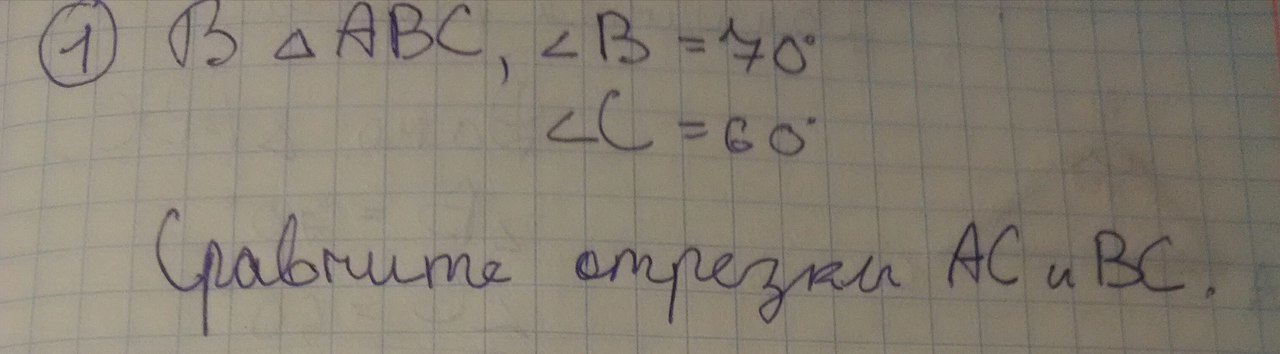 ① В △ ABC, ∠B = 70°
∠C = 60°
Сравните отрезки AC и BC.